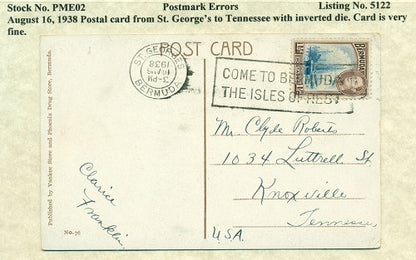 Stock No. PME02 Postmark Errors Listing No. 5122
August 16, 1938 Postal card from St. George's to Tennessee with inverted die. Card is very
fine.
POST CARD
ST. GEORGES
3-PM
1938
BERMUDA
COME TO BERMUDA
THE ISLES OF REST
BERMUDA
Mr Clyde Roberts
1034 Luttrell St.
Knoxville
Tennessee
U.S.A.
Clarice
Franklin
Published by Yankee Store and Phoenix Drug Store, Bermuda.
No. 76